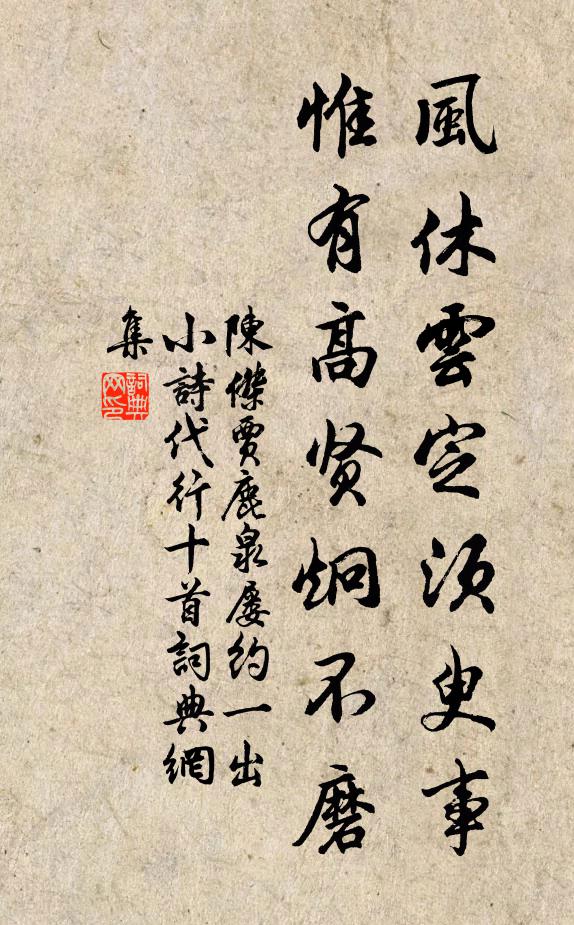 風休雲定須臾事
惟有高贤炯不磨
陳傑賈鹿泉屡約一出
小詩代行十首詞典網
集
詞典
网印